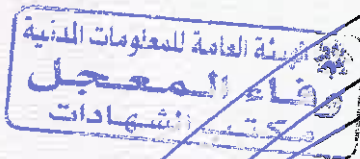 الهيئة العامة للمعلومات المدنية
وفاء المعجل
مكتب الشهادات